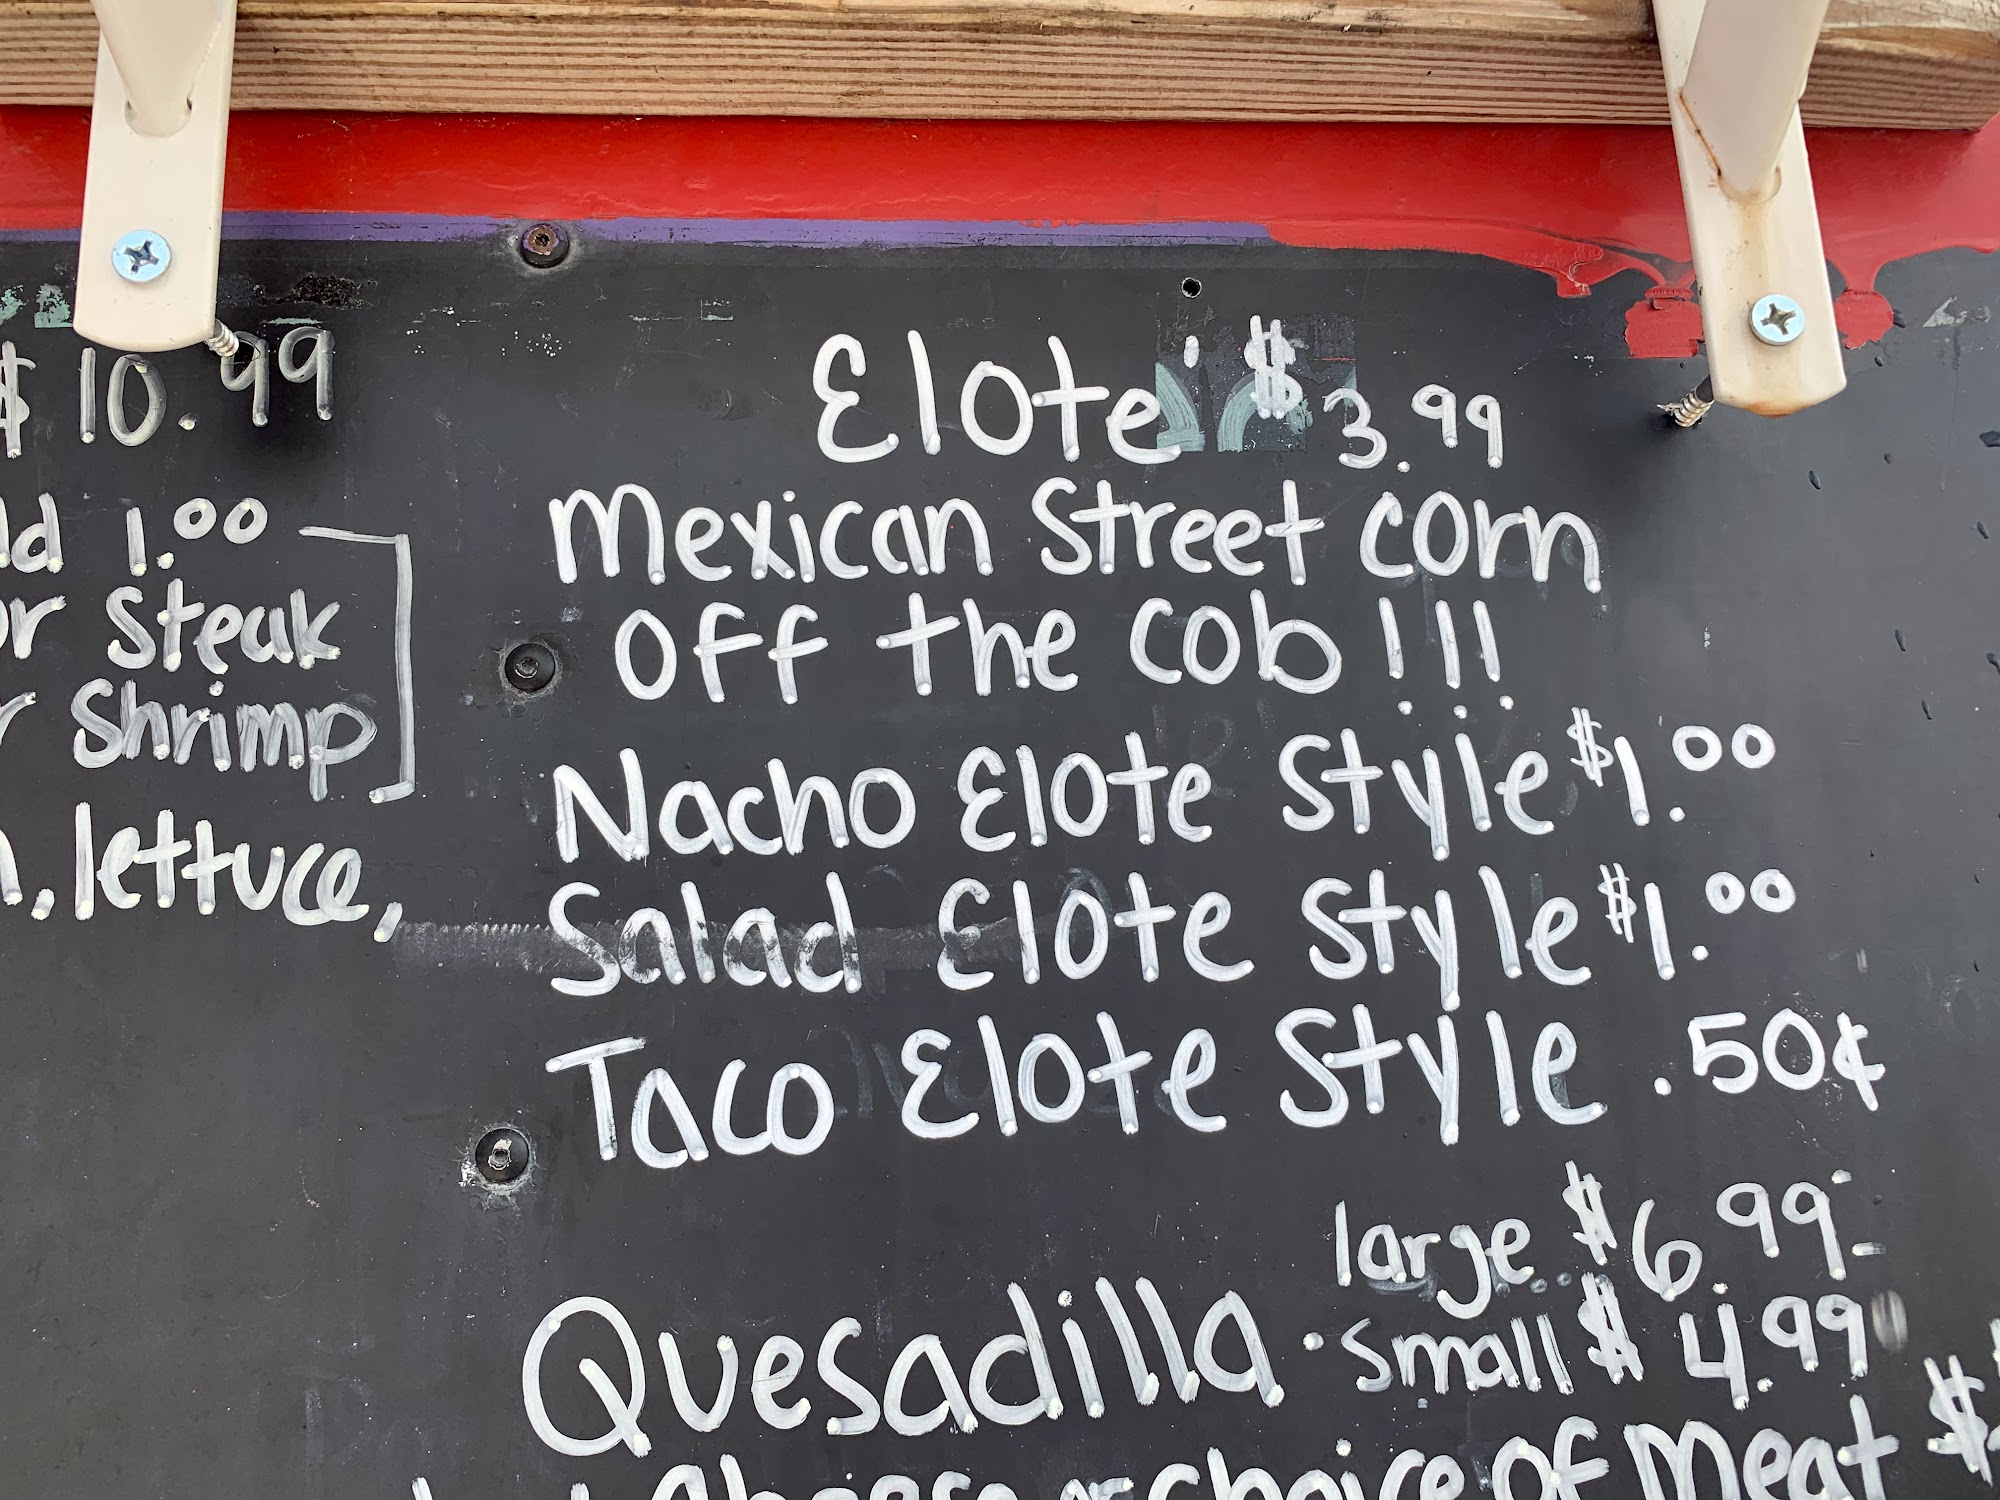 $ 10.99
1.00
or steak
Shrimp
lettuce,
Elote $3.99
Mexican Street corn
off the cob!!!
Nacho Elote Style $1.00
Salad Elote Style $1.00
Taco Elote Style .50¢
large $6.99
Quesadilla · small $4.99
choice of meat $